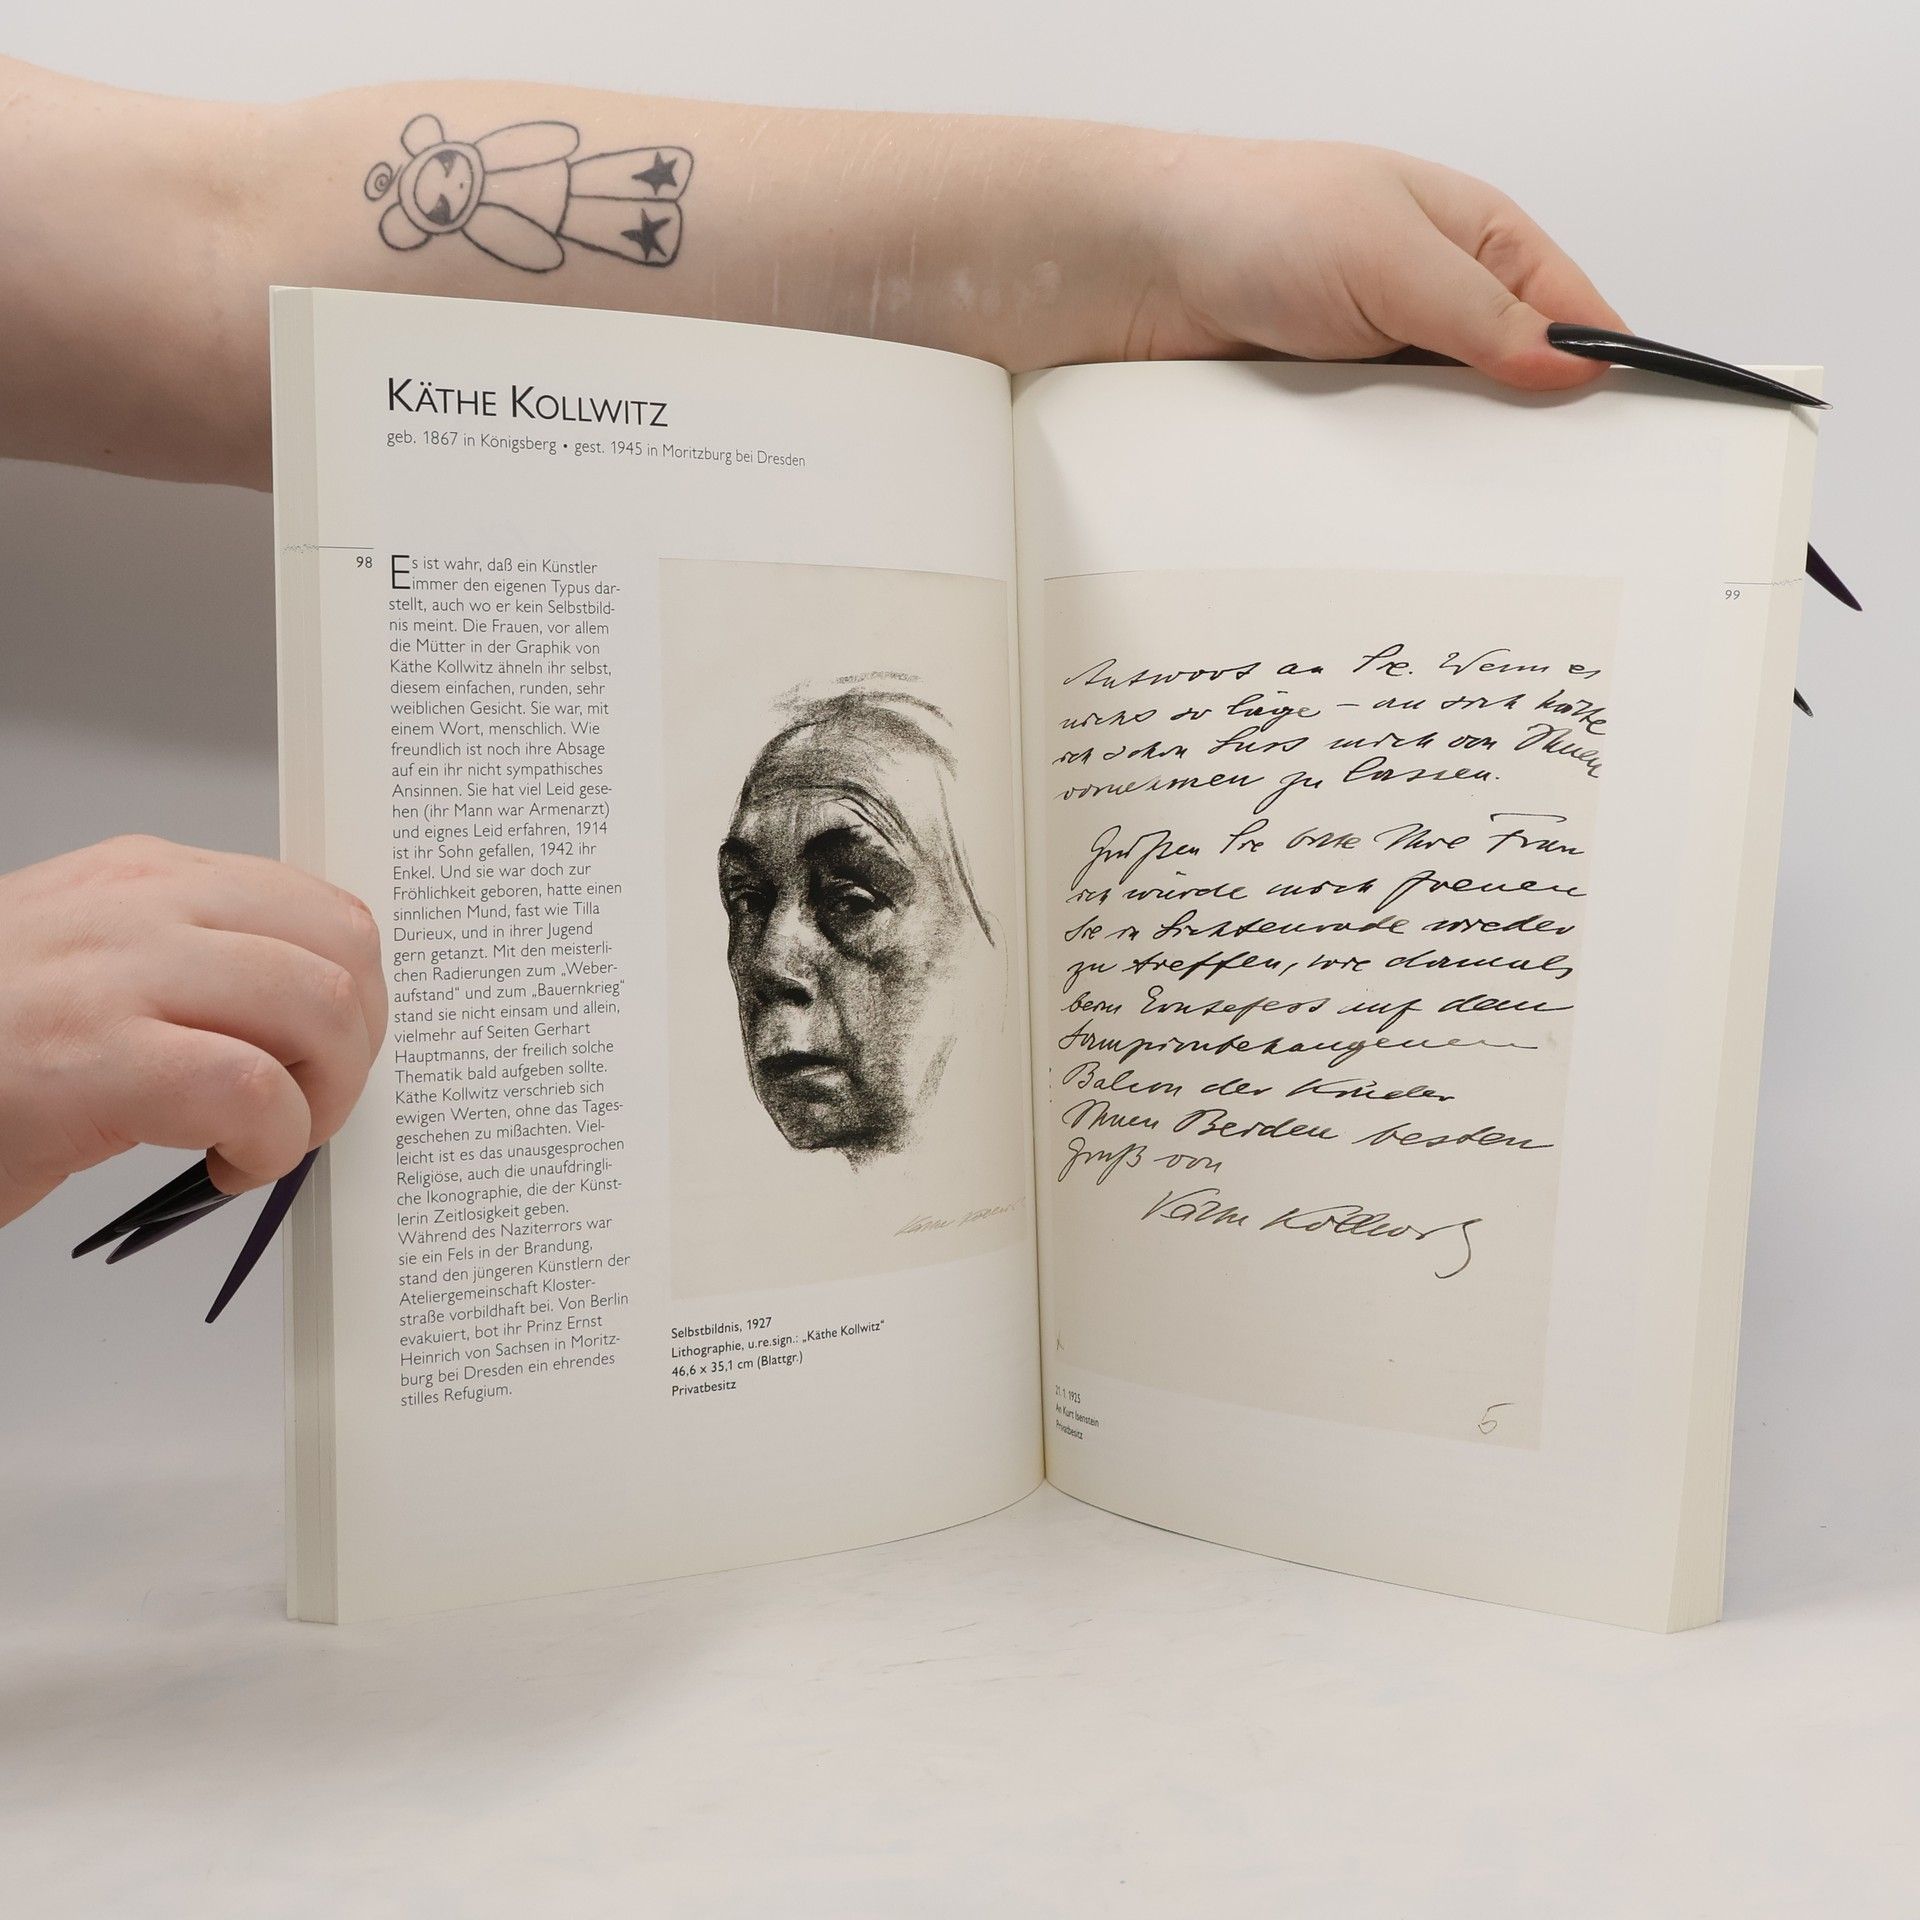 KÄTHE KOLLWITZ
geb. 1867 in Königsberg • gest. 1945 in Moritzburg bei Dresden
98
Es ist wahr, daß ein Künstler
immer den eigenen Typus dar-
stellt, auch wo er kein Selbstbild-
nis meint. Die Frauen, vor allem
die Mütter in der Graphik von
Käthe Kollwitz ähneln ihr selbst,
diesem einfachen, runden, sehr
weiblichen Gesicht. Sie war, mit
einem Wort, menschlich. Wie
freundlich ist noch ihre Absage
auf ein ihr nicht sympathisches
Ansinnen. Sie hat viel Leid gese-
hen (ihr Mann war Armenarzt)
und eignes Leid erfahren, 1914
ist ihr Sohn gefallen, 1942 ihr
Enkel. Und sie war doch zur
Fröhlichkeit geboren, hatte einen
sinnlichen Mund, fast wie Tilla
Durieux, und in ihrer Jugend
gern getanzt. Mit den meisterli-
chen Radierungen zum „Weber-
aufstand“ und zum „Bauernkrieg“
stand sie nicht einsam und allein,
vielmehr auf Seiten Gerhart
Hauptmanns, der freilich solche
Thematik bald aufgeben sollte.
Käthe Kollwitz verschrieb sich
ewigen Werten, ohne das Tages-
geschehen zu mißachten. Viel-
leicht ist es das unausgesprochen
Religiöse, auch die unaufdringli-
che Ikonographie, die der Künst-
lerin Zeitlosigkeit geben.
Während des Naziterrors war
sie ein Fels in der Brandung,
stand den jüngeren Künstlern der
Ateliergemeinschaft Kloster-
straße vorbildhaft bei. Von Berlin
evakuiert, bot ihr Prinz Ernst
Heinrich von Sachsen in Moritz-
burg bei Dresden ein ehrendes
stilles Refugium.
Käthe Kollwitz
Selbstbildnis, 1927
Lithographie, u.re.sign.: „Käthe Kollwitz“
46,6 x 35,1 cm (Blattgr.)
Privatbesitz
99
Antwort an Sie. Wenn es
nicht so läge – an sich hätte
ich schon Lust mich von Ihnen
vornehmen zu lassen.
Grüßen Sie bitte Ihre Frau
ich würde mich freuen
Sie in Lichtenrade wieder
zu treffen, wie damals
beim Erntefest auf dem
lampionbehangenen
Balcon der Kinder
Ihnen Beiden besten
Gruß von
Käthe Kollwitz
21. 1. 1925
An Kurt Isenstein
Privatbesitz
5